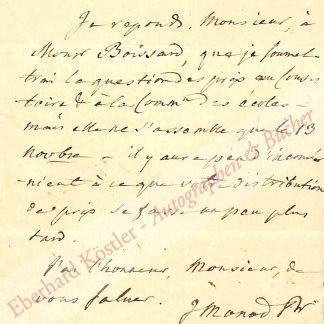 Je reponds, Monsieur, à
Monsr Boissard, que je soumet-
trai la question des prix au Consis-
toire & à la Commn des écoles -
mais elle ne s'assemble que le 13
novbre - il y aura peu d'inconvé-
nient à ce que votre distribution
de prix se fasse un peu plus
tard.
J'ai l'honneur, Monsieur, de
vous saluer.
J Monod Pr
Eberhard Köstler - Autographen & Bücher